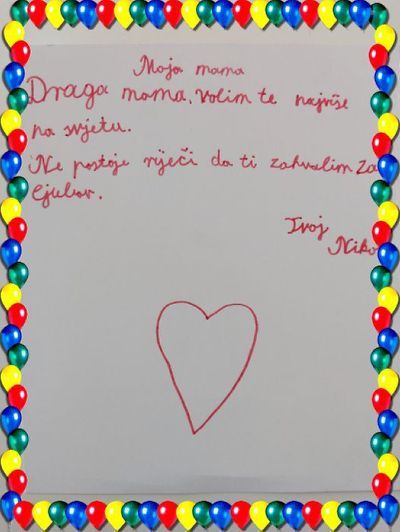 Moja mama
Draga mama, volim te najviše
na svjetu.
Ne postoje riječi da ti zahvalim za
ljubav.
Tvoj
Niko